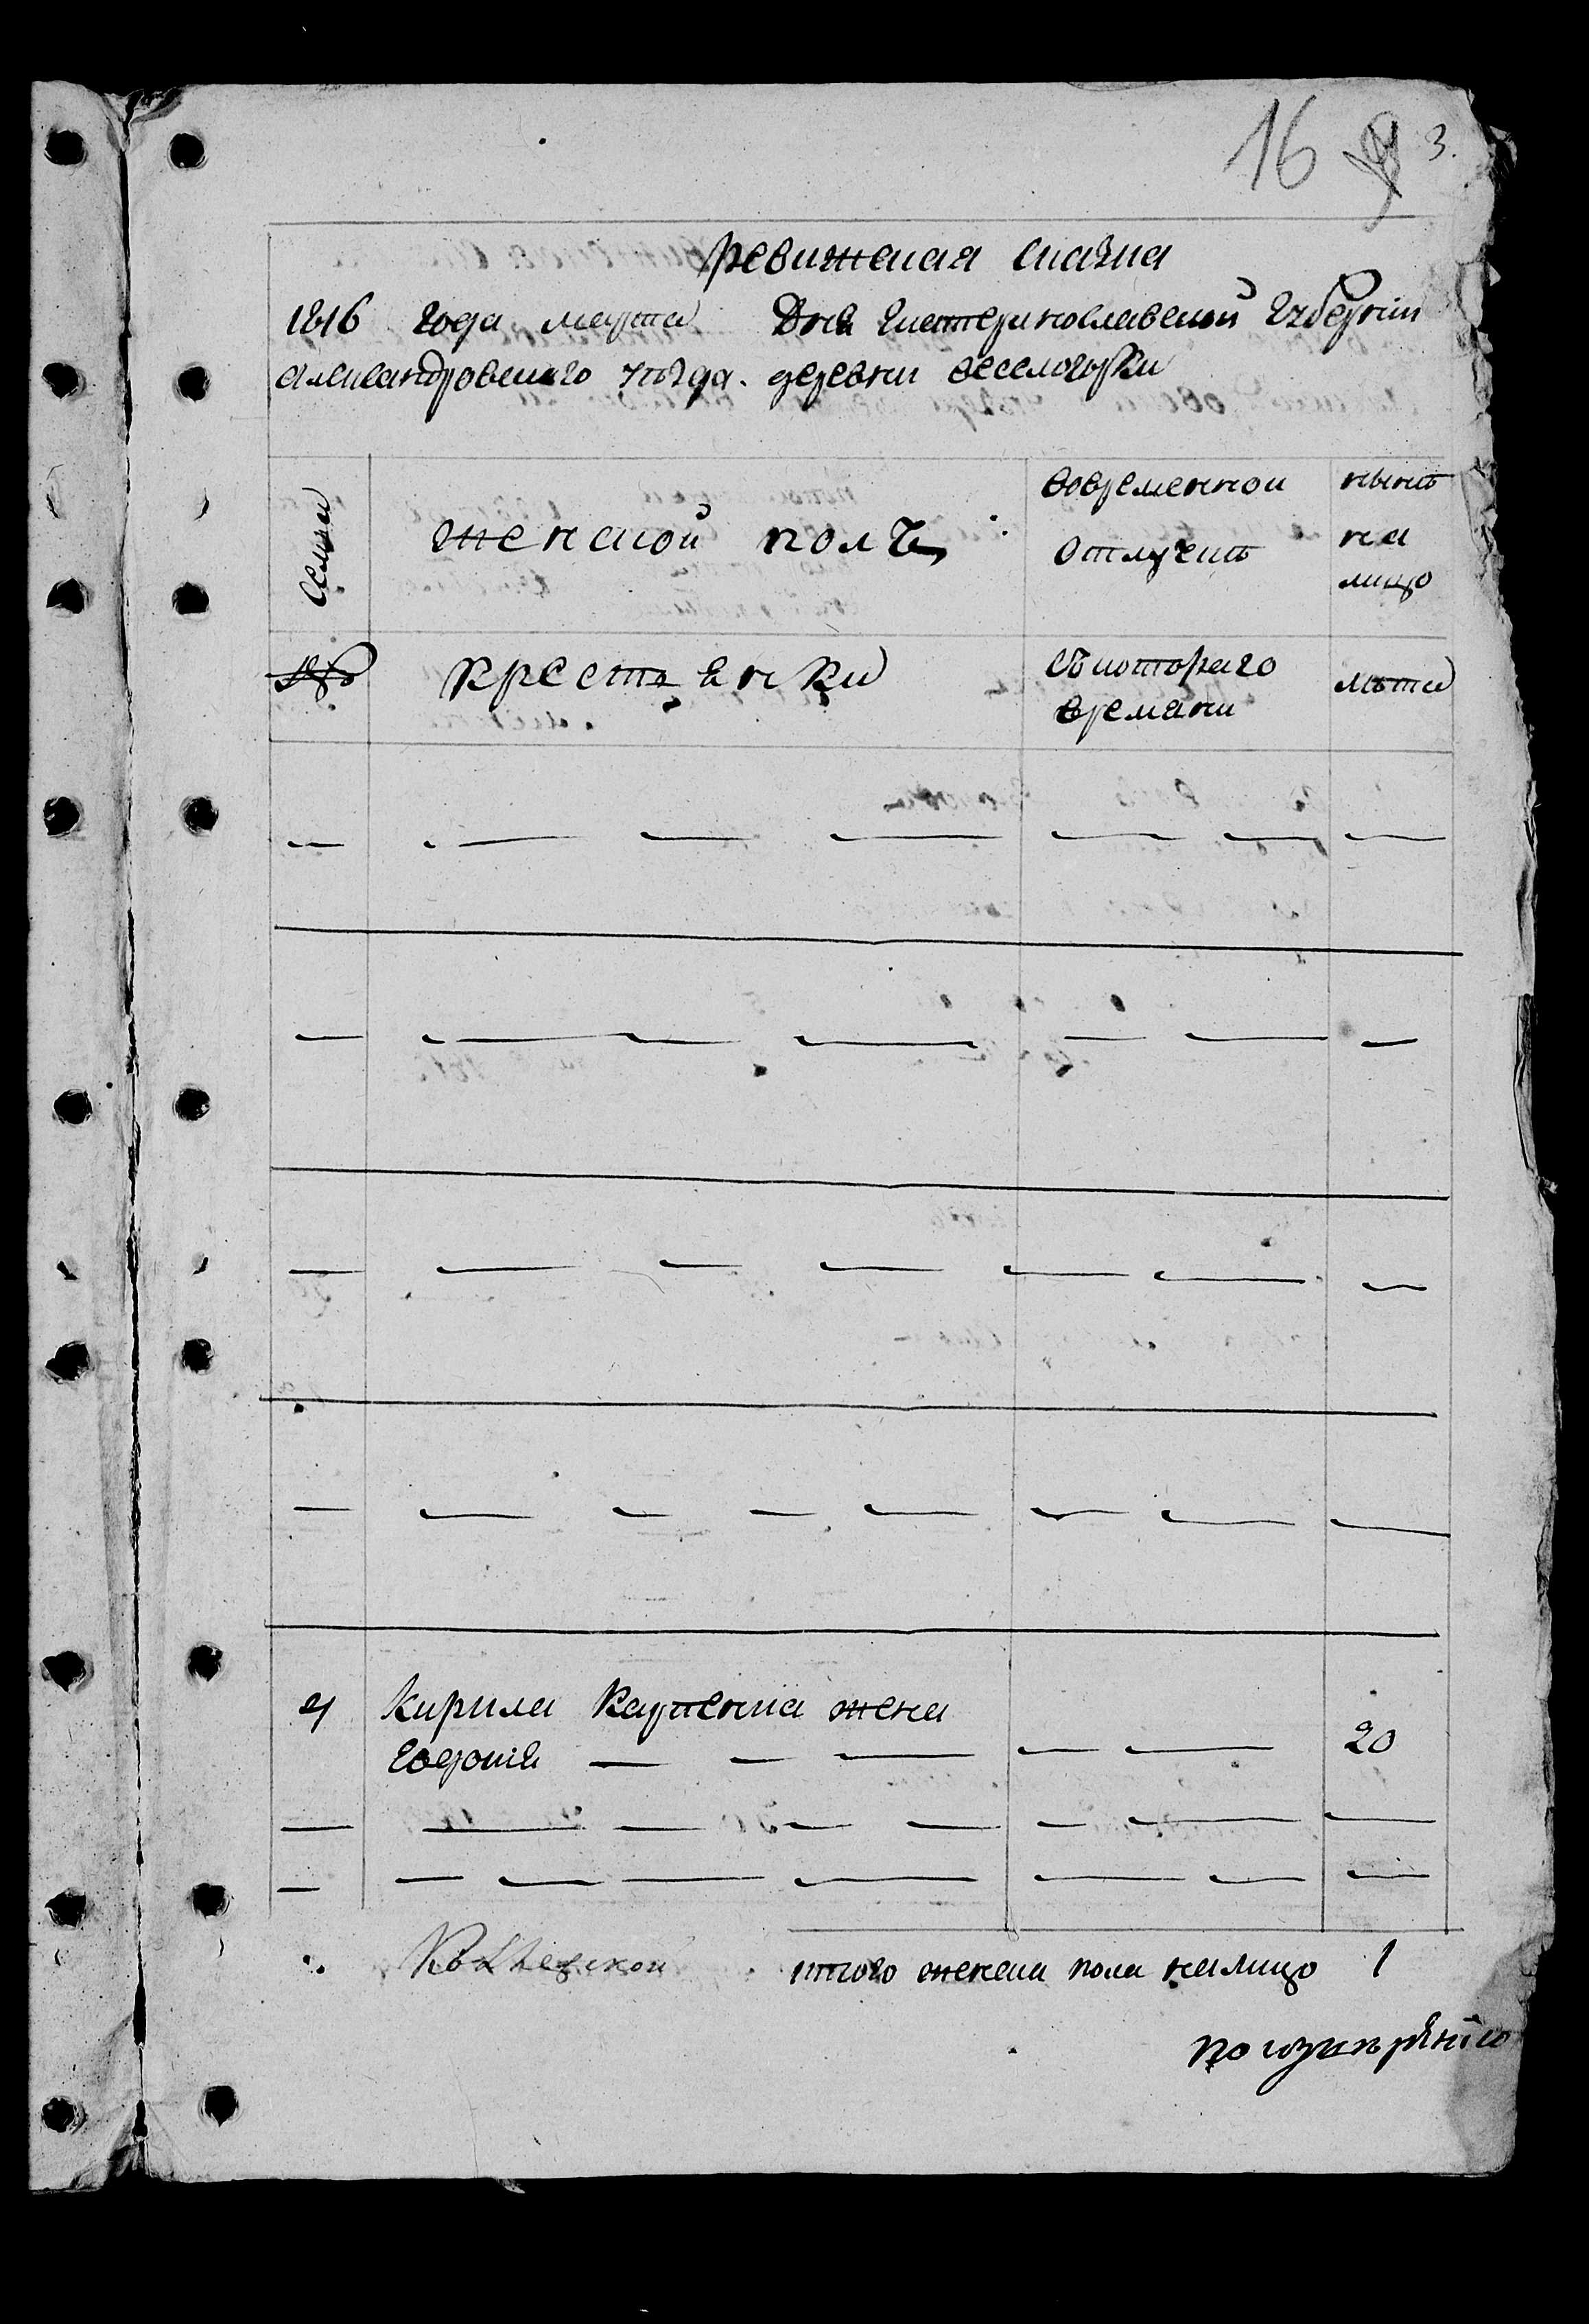 16 9 3.
ревижская сказка
1816 года марта Дня Екатеринославской Губернии
александровского уезда. деревни веселогорки
Семьи
женской полъ
вовременной отлучкѣ
нынѣ на лицо
№
крестьянки
съ котораго времяни
лѣта
4 Кирила Карпенка жена
Федосия 20
итого женска пола налицо 1